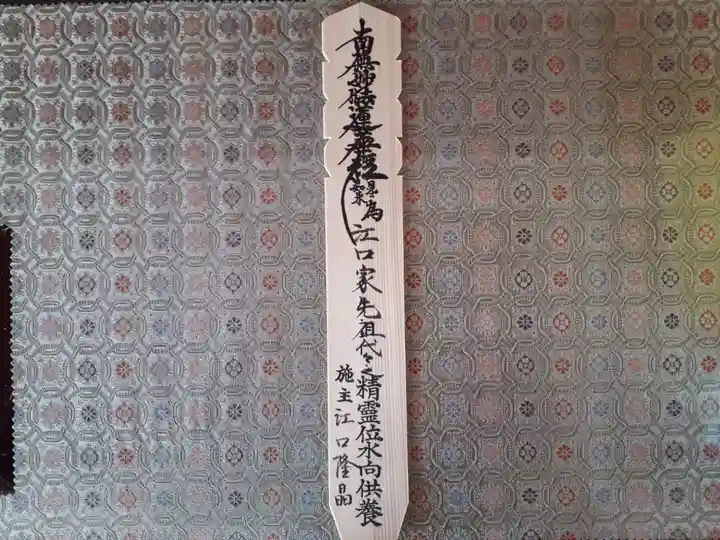 南無妙法蓮華経
為
江口家先祖代々之精靈位水向供養
施主江口隆晶